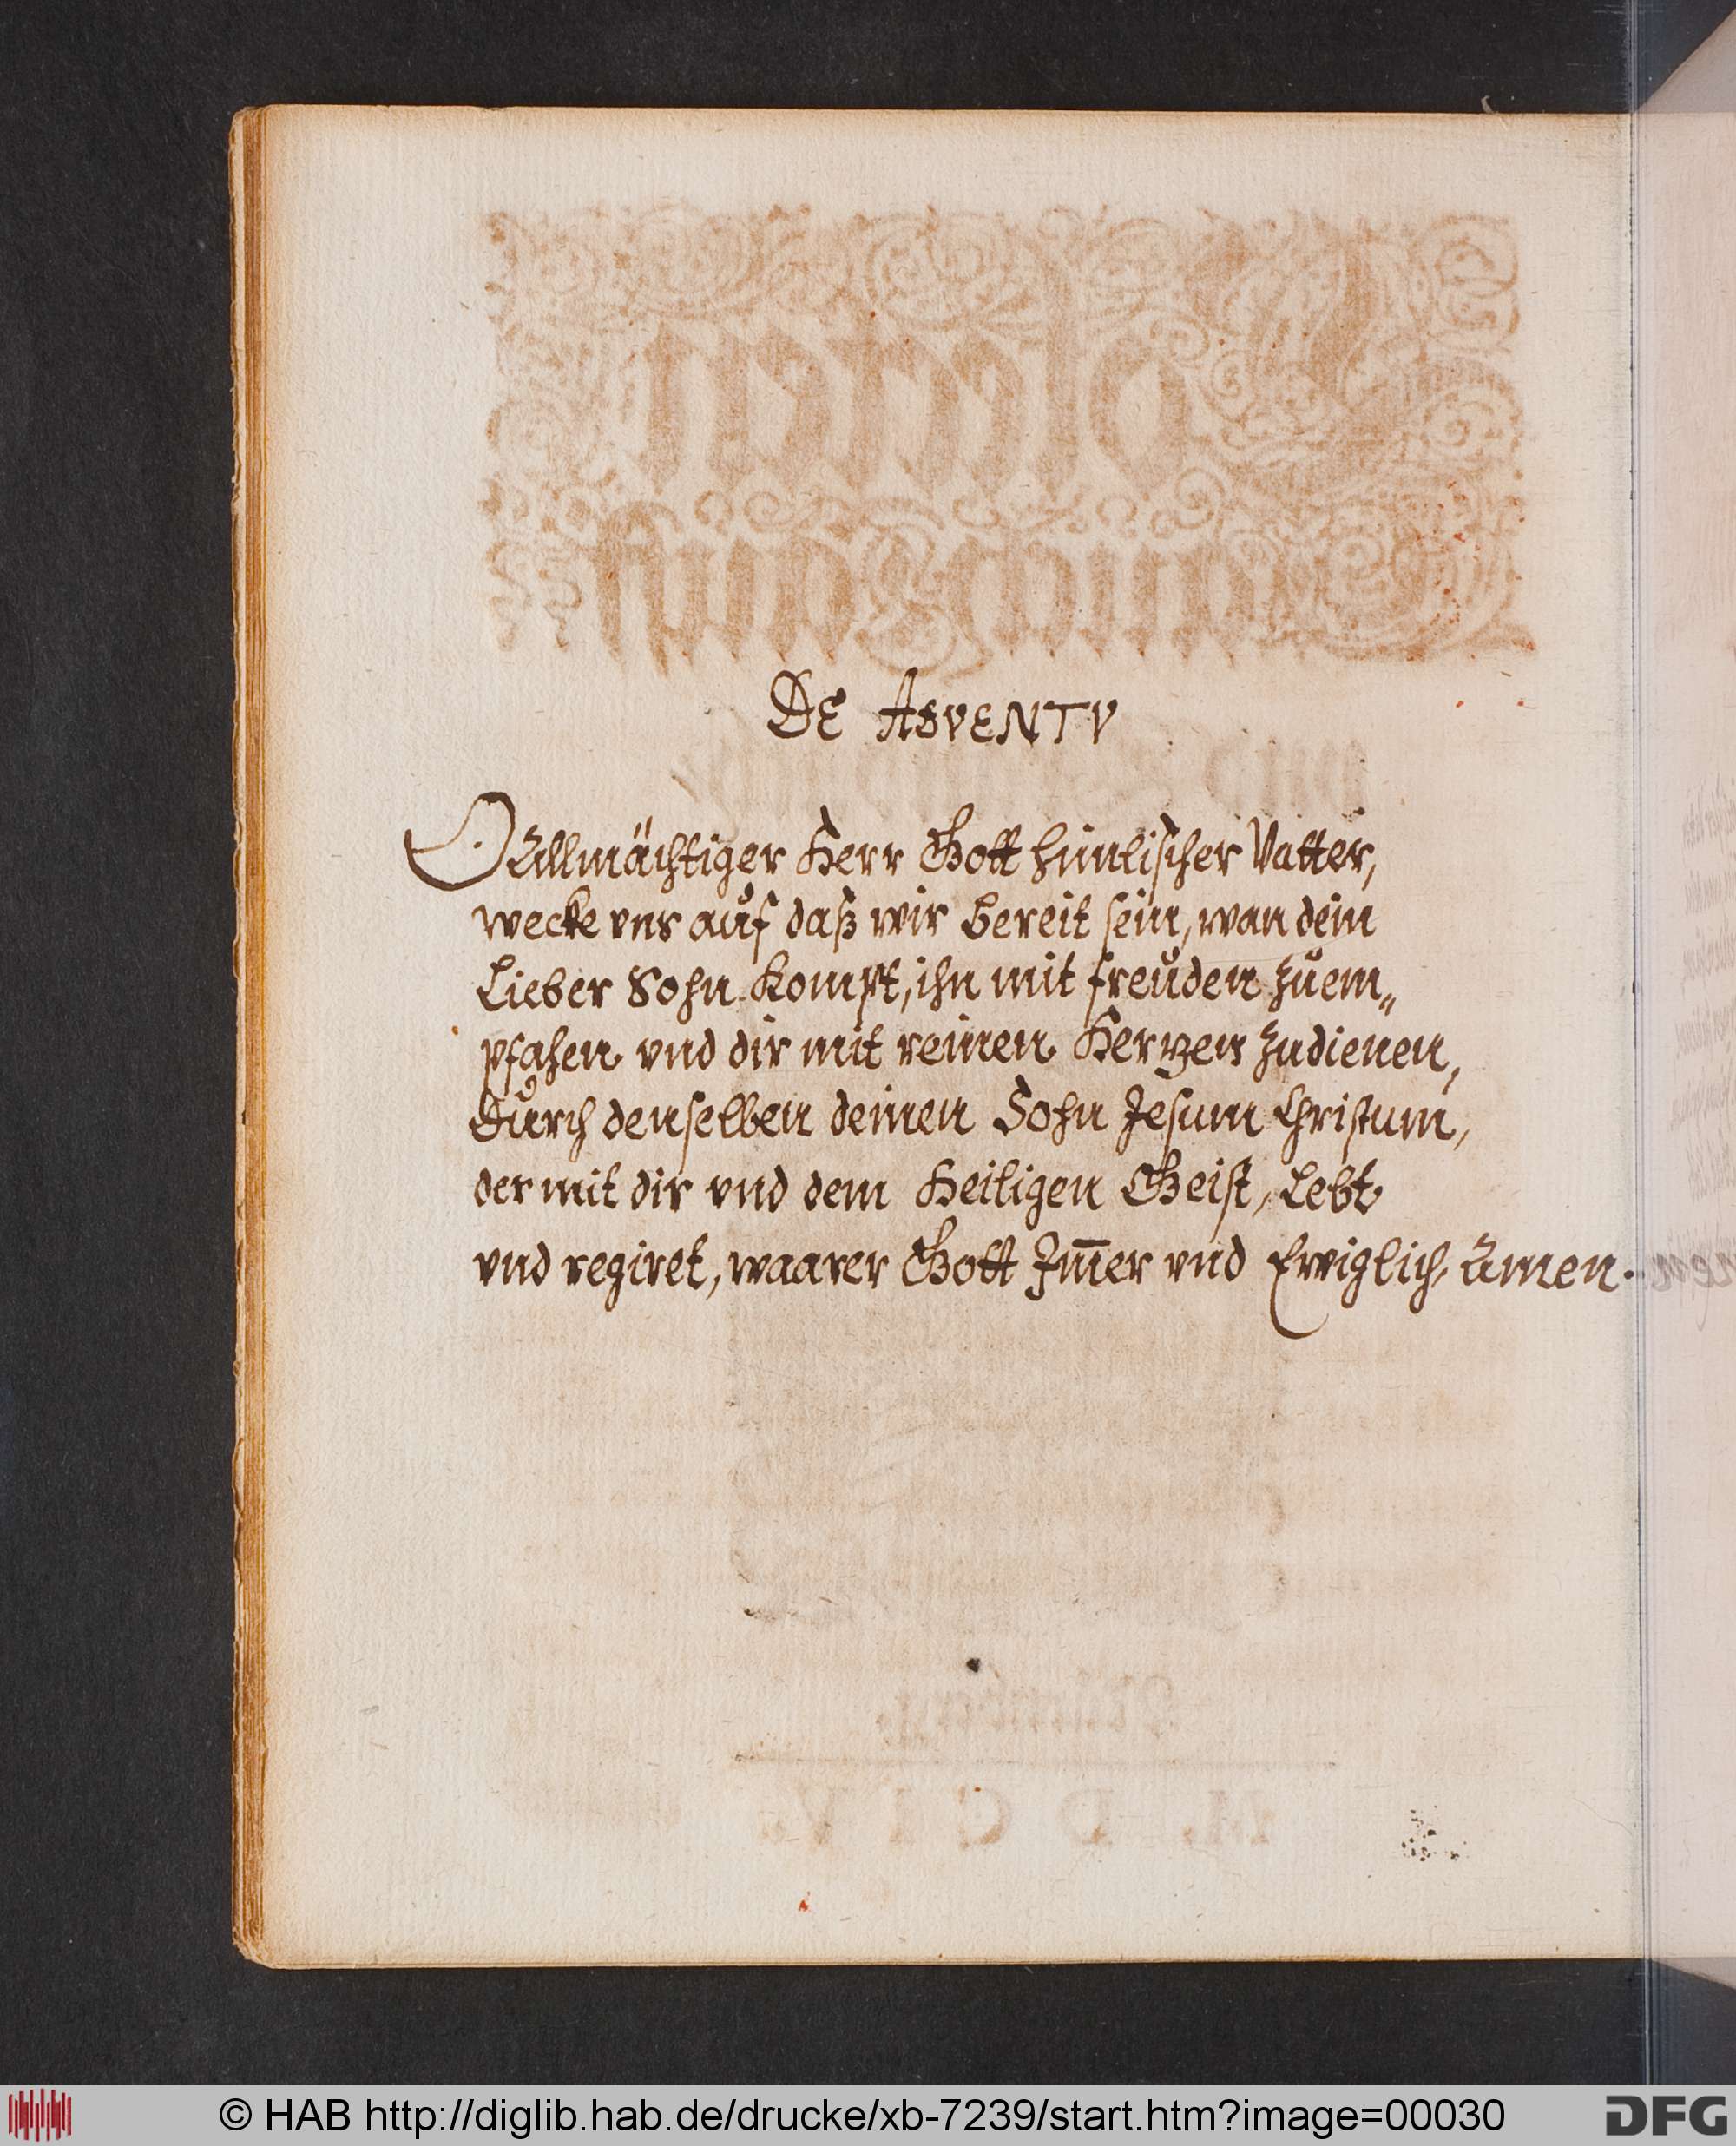 DE ADVENTV
O Allmächtiger Herr Gott himlischer Vatter,
wecke vns auf daß wir bereit sein, wan dein
Lieber Sohn kompt, ihn mit freuden zuem„
pfahen vnd dir mit reinen Hertzen zudienen,
Durch denselben deinen Sohn Jesum Christum,
der mit dir vnd dem Heiligen Geist, Lebt
vnd regiret, waarer Gott Im̅er vnd Ewiglich, Amen.
M. D C I V.
© HAB http://diglib.hab.de/drucke/xb-7239/start.htm?image=00030
DFG